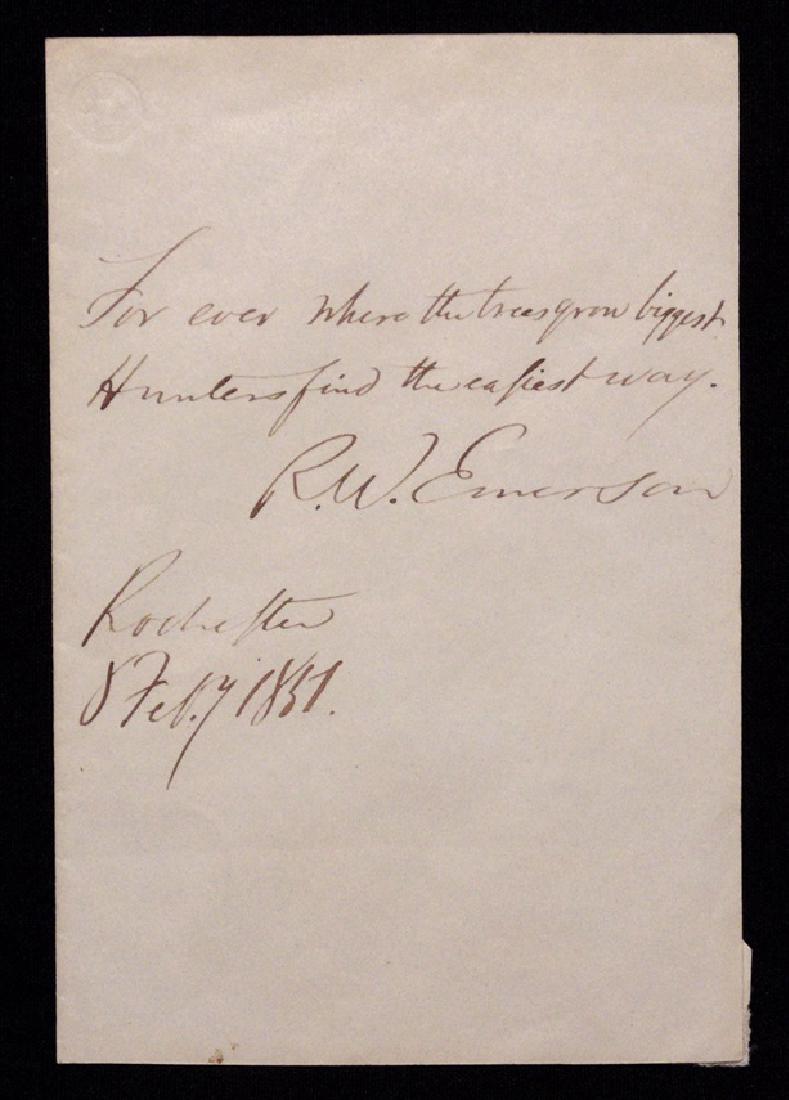 For ever where the trees grow biggest
Hunters find the easiest way.
R.W. Emerson
Rochester
8 Feb.y 1851.